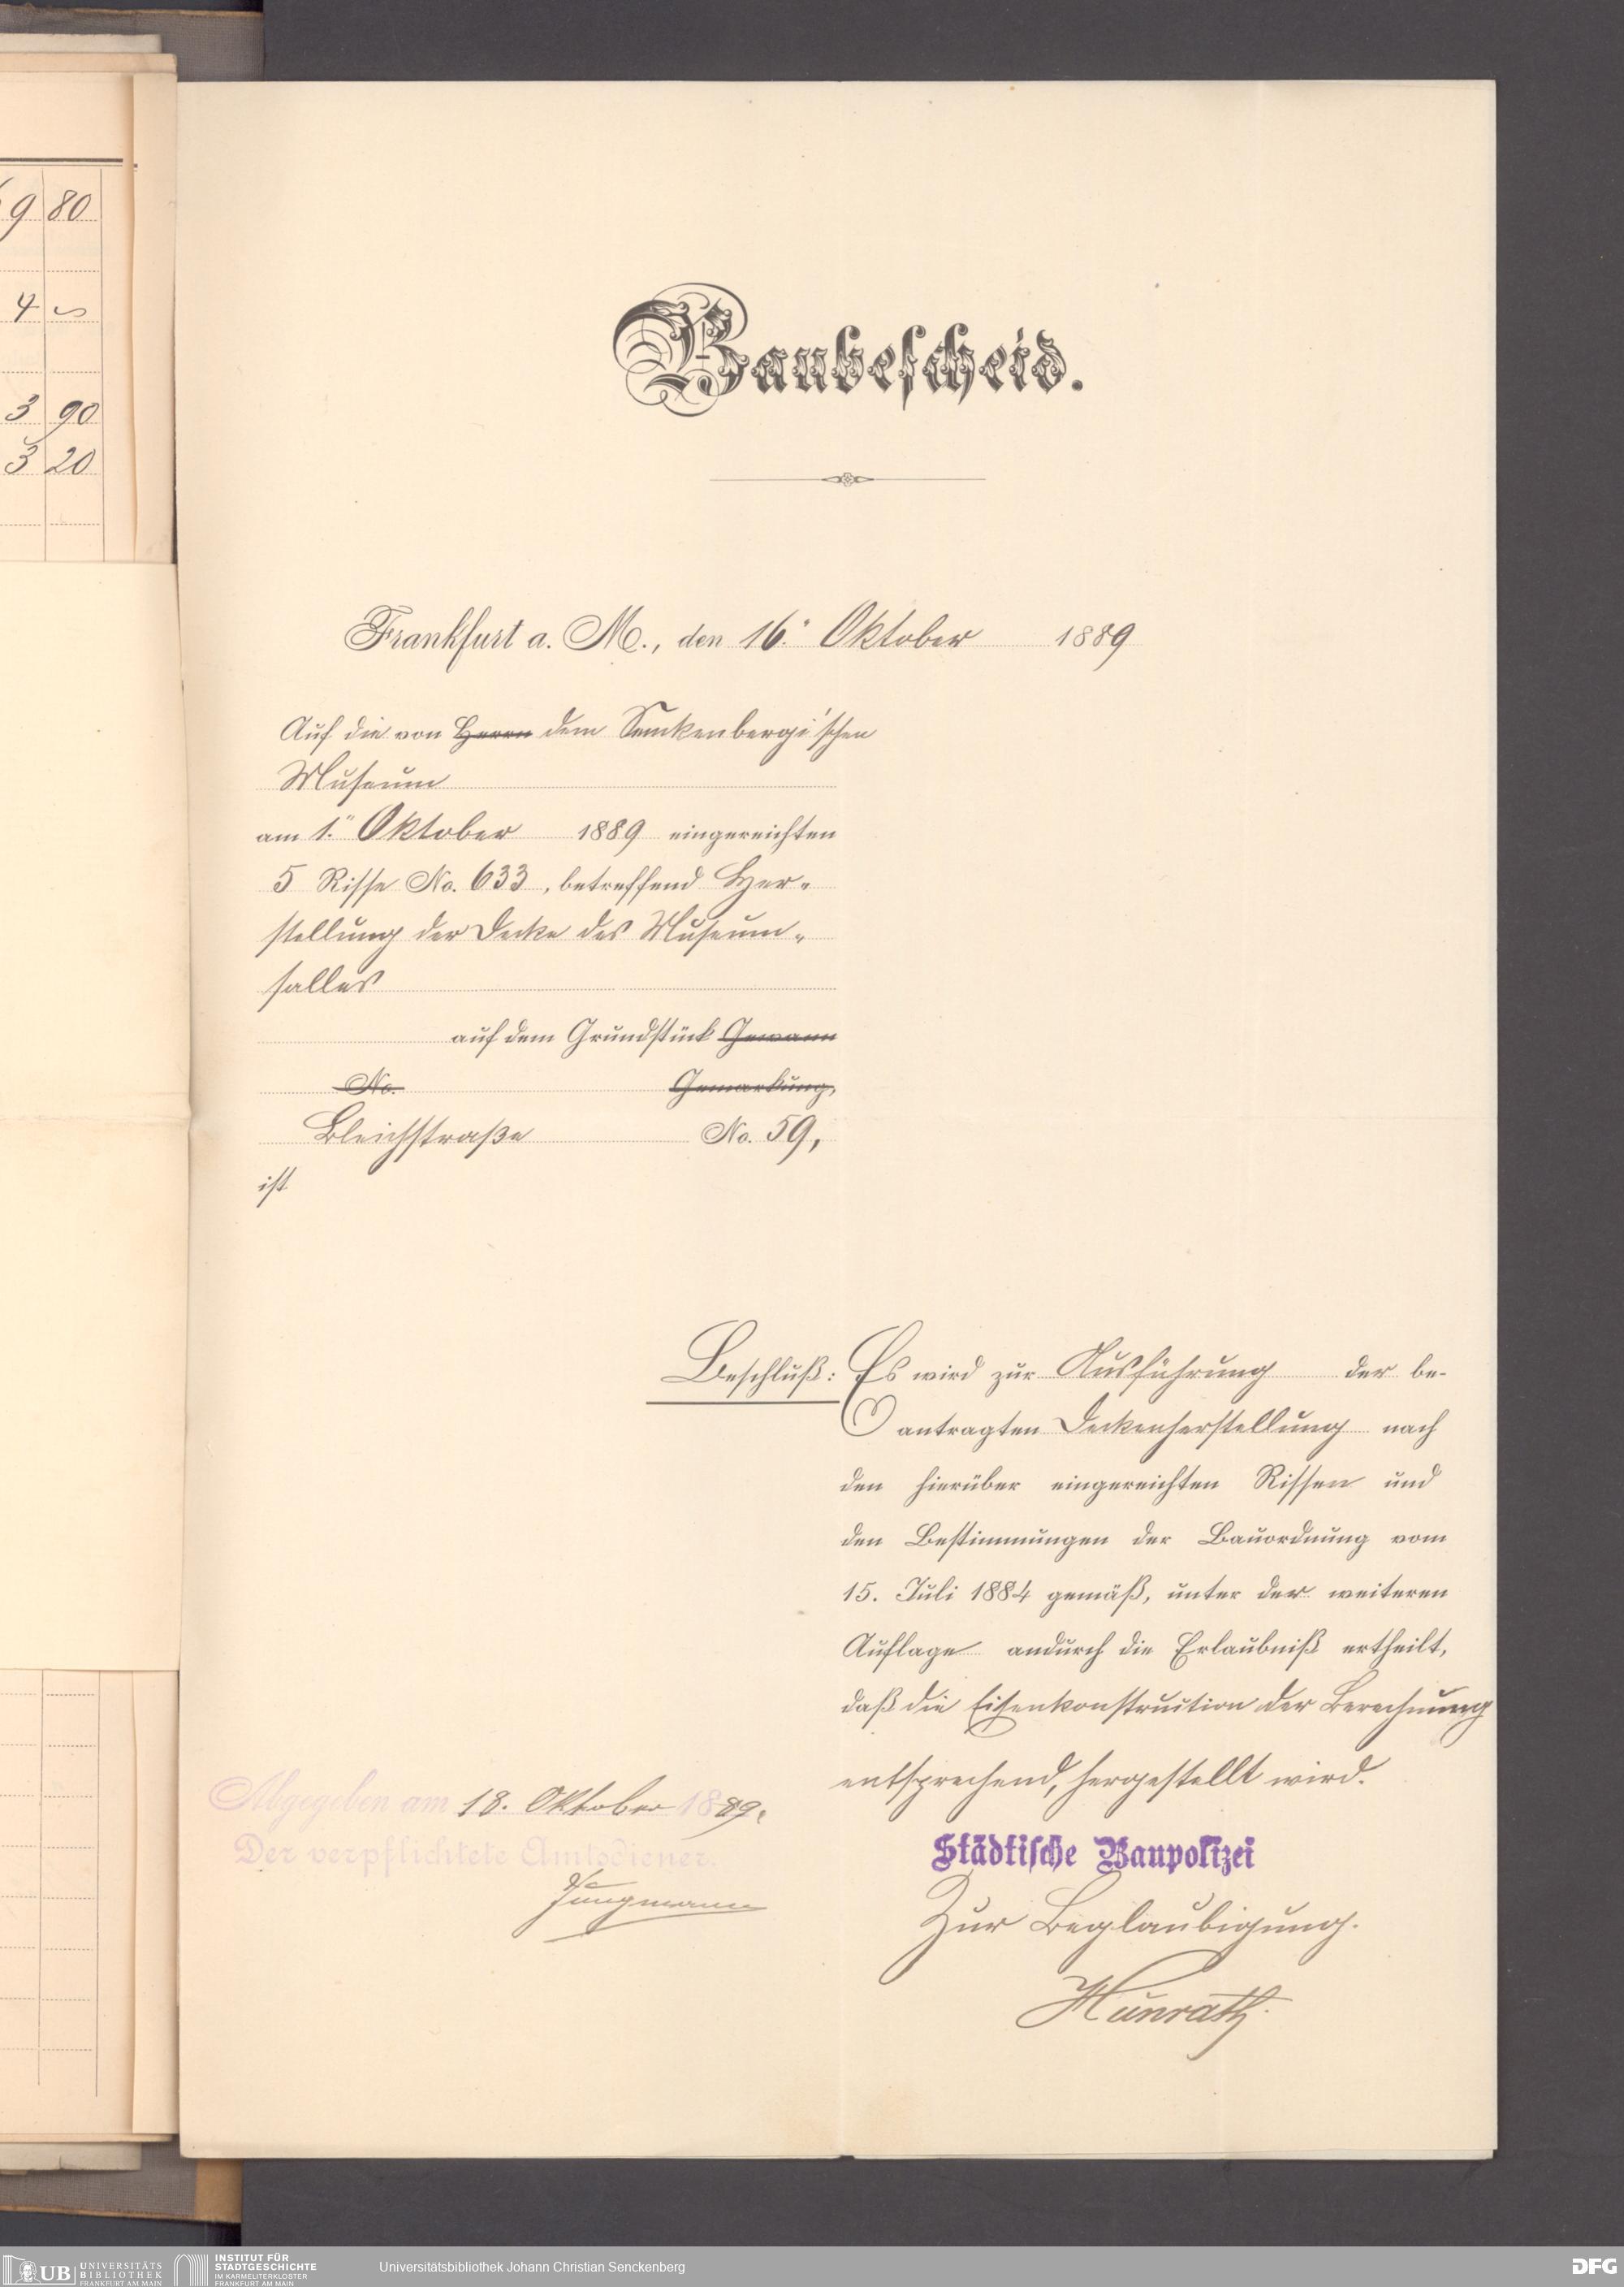 9 80
4
3 90
3 20
Baubescheid.
Frankfurt a. M., den 16.ⁿ Oktober 1889
Auf die von Herrn dem Senckenbergi'schen
Museum
am 1.ⁿ Oktober 1889 eingereichten
5 Risse No. 633, betreffend Her-
stellung der Decke des Museum-
saales
auf dem Grundstück Gewann
No. Gemarkung,
Bleichstraße No. 59,
ist
Beschluß: Es wird zur Ausführung der be-
antragten Deckenherstellung nach
den hierüber eingereichten Rissen und
den Bestimmungen der Bauordnung vom
15. Juli 1884 gemäß, unter der weiteren
Auflage andurch die Erlaubniß ertheilt,
daß die Eisenkonstruction der Berechnung
entsprechend, hergestellt wird.
Abgegeben am 18. Oktober 1889.
Der verpflichtete Amtsdiener.
Jungmann
Städtische Baupolizei
Zur Beglaubigung.
Hünrath
UB UNIVERSITÄTS
BIBLIOTHEK
FRANKFURT AM MAIN
INSTITUT FÜR
STADTGESCHICHTE
IM KARMELITERKLOSTER
FRANKFURT AM MAIN
Universitätsbibliothek Johann Christian Senckenberg
DFG